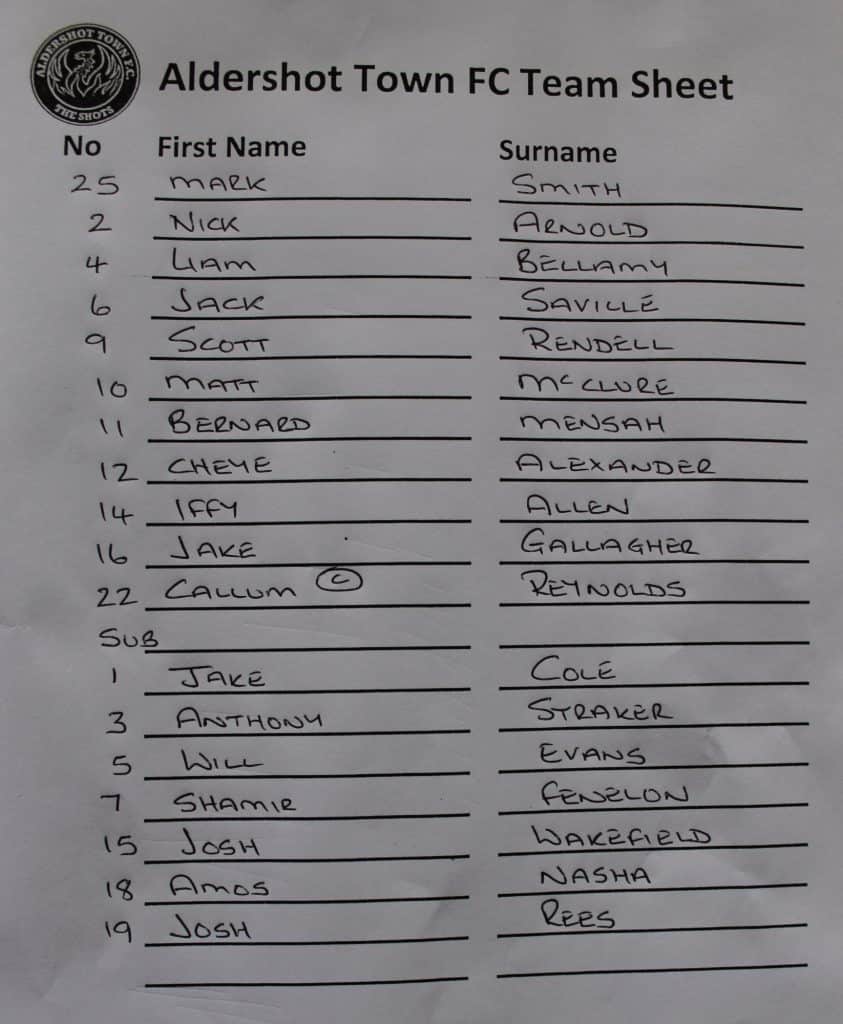 ALDERSHOT TOWN F.C.
THE SHOTS
Aldershot Town FC Team Sheet
No First Name Surname
25 MARK SMITH
2 NICK ARNOLD
4 LIAM BELLAMY
6 JACK SAVILLE
9 SCOTT RENDELL
10 MATT McCLURE
11 BERNARD MENSAH
12 CHEYE ALEXANDER
14 IFFY ALLEN
16 JAKE GALLAGHER
22 CALLUM C REYNOLDS
SUB
1 JAKE COLE
3 ANTHONY STRAKER
5 WILL EVANS
7 SHAMIR FENELON
15 JOSH WAKEFIELD
18 AMOS NASHA
19 JOSH REES